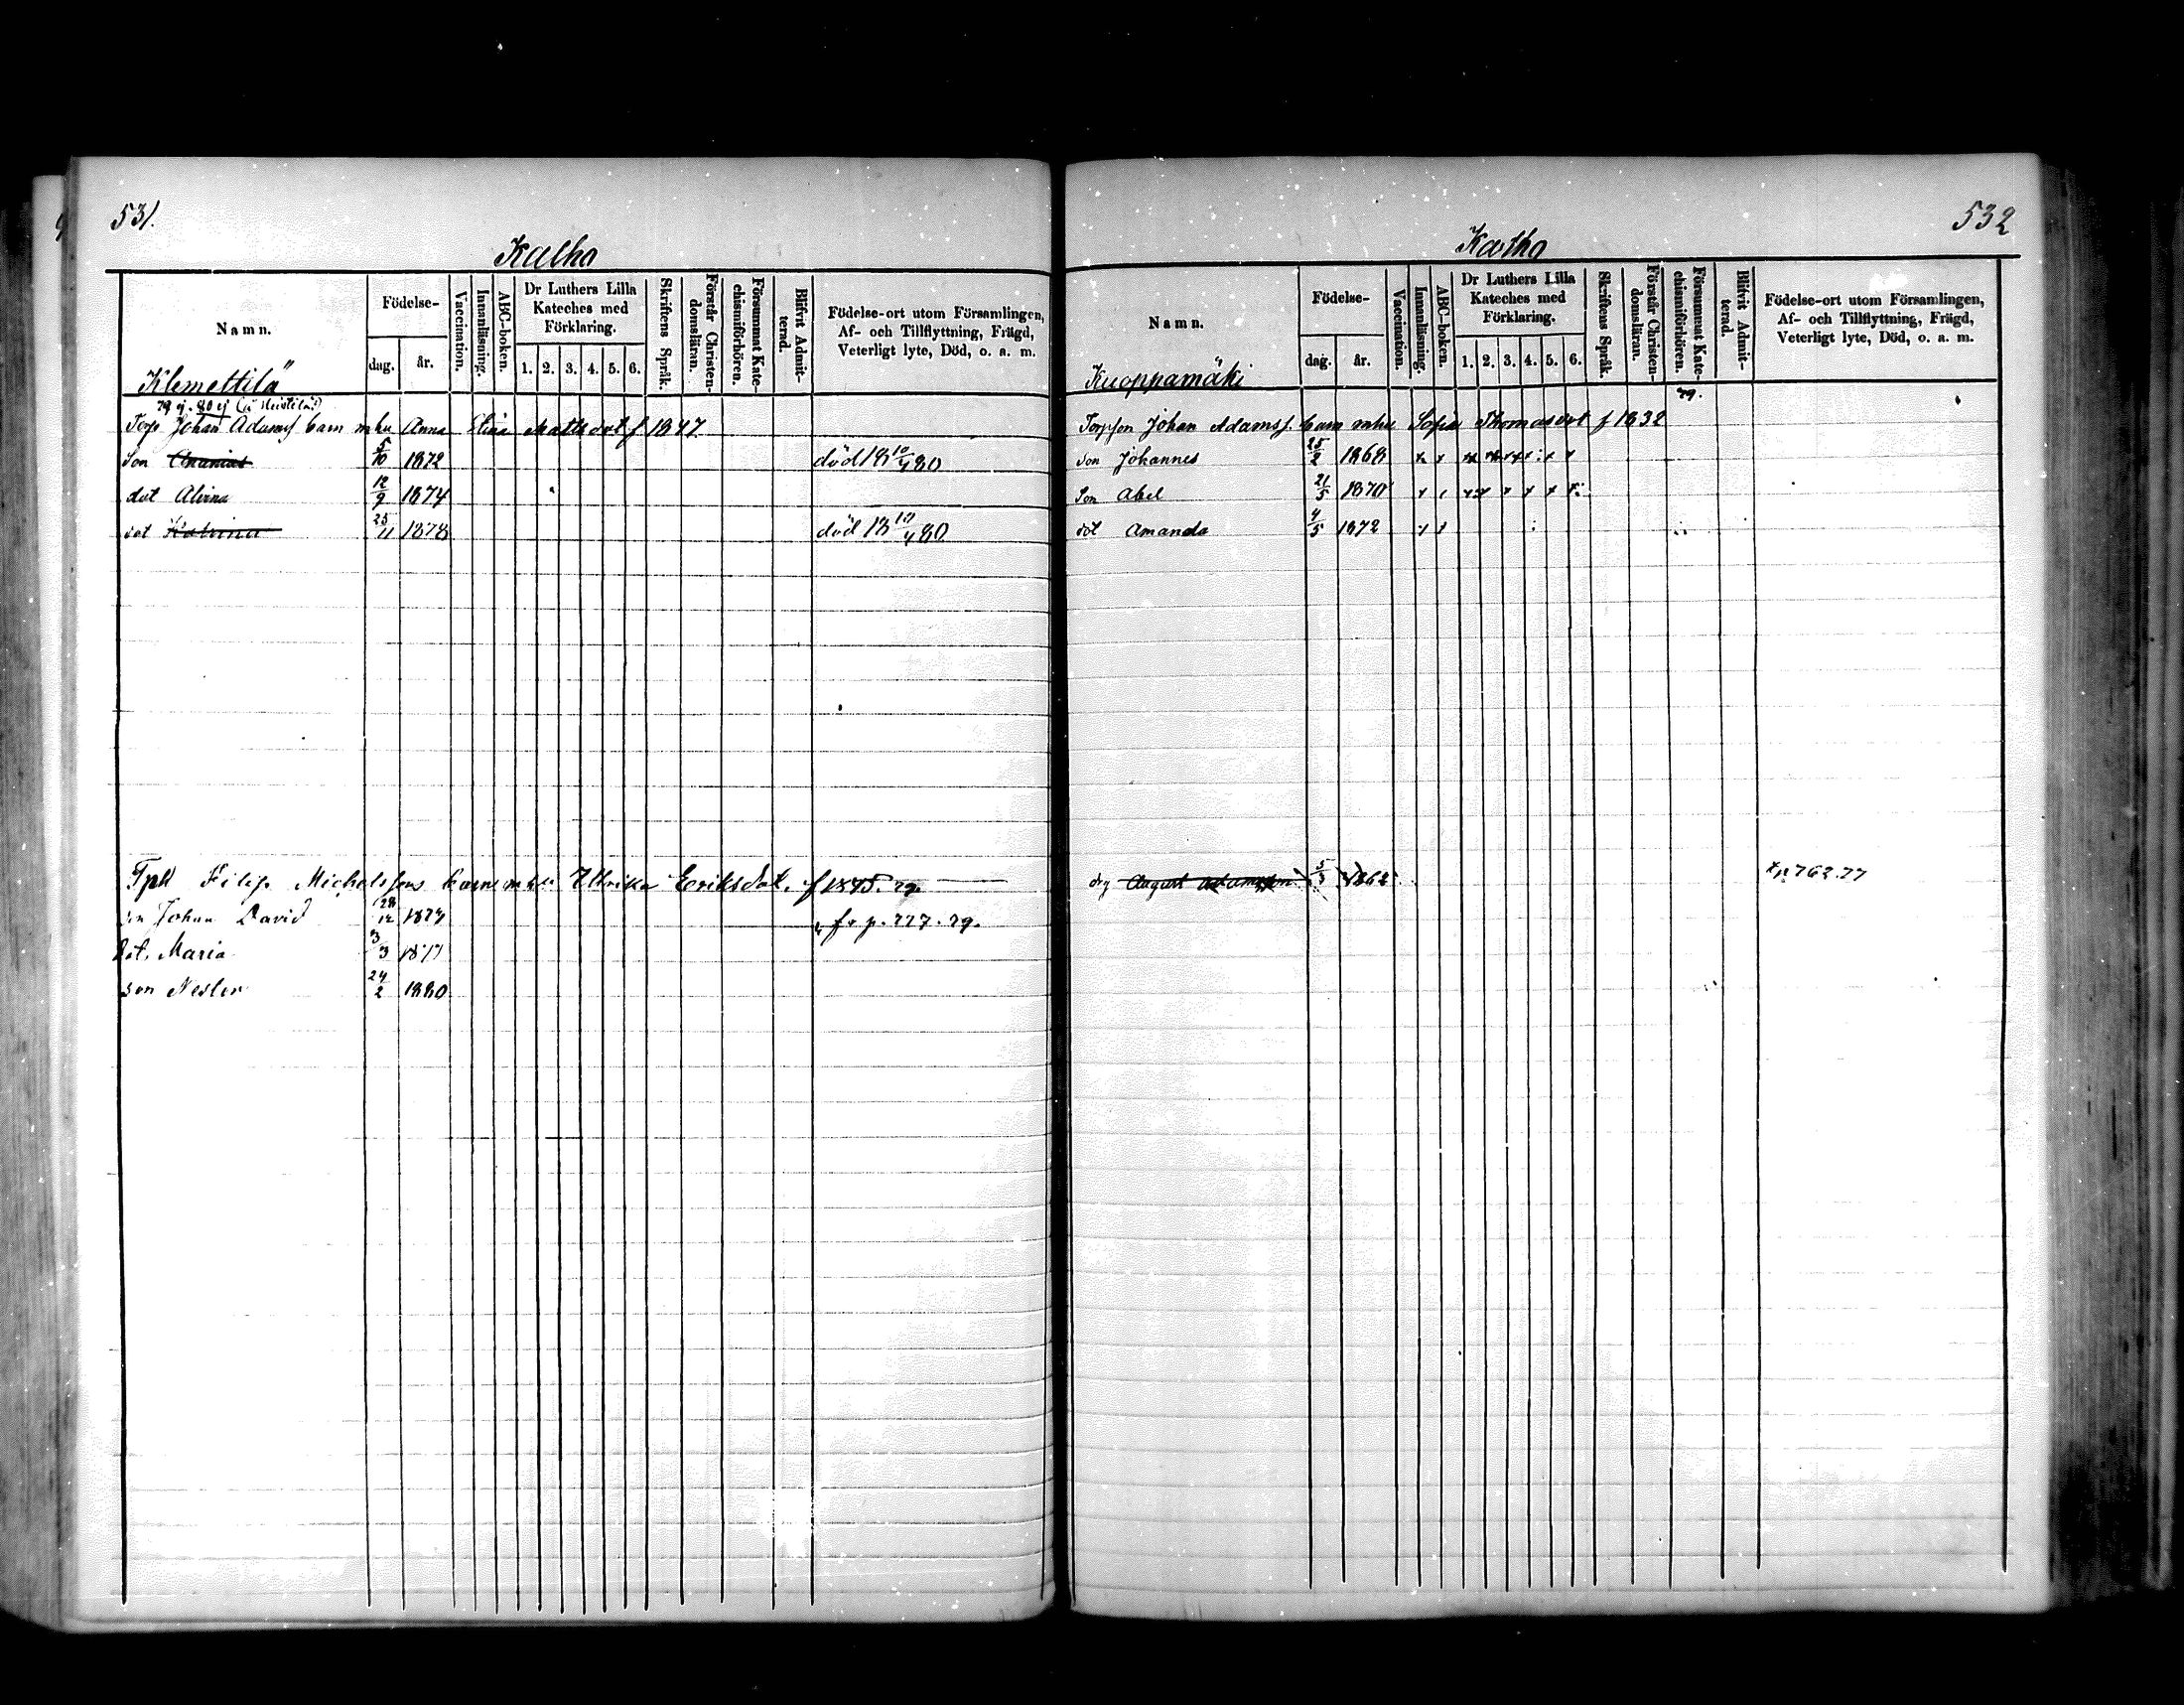 531.
Kalho
Namn.
Födelse-
dag.
år.
Vaccination.
Innanläsning.
ABC-boken.
Dr Luthers Lilla
Kateches med
Förklaring.
1. 2. 3. 4. 5. 6.
Skriftens Språk.
Förstår Christen-
domsläran.
Försummat Kate-
chismiförhören.
Blifvit Admit-
terad.
Födelse-ort utom Församlingen,
Af- och Tillflyttning, Frägd,
Veterligt lyte, Död, o. a. m.
Klemettilä
79 ej. 80 ej
Torp Johan Adamsf barn mhu Anna Elina Matts dot f 1847
Son Ananias 5/10 1872 död 18 10/4 80
dot Alvina 12/9 1874
dot Katrina 25/11 1878 död 18 10/4 80
Tph Filip Michelssons barn mhu Ulrika Eriksdot. f 1845. 79.
son Johan David 28/12 1874 fr p. 227. 79.
dot. Maria 3/3 1877
son Nestor 24/2 1880
532
Kastho
Namn.
Födelse-
dag.
år.
Vaccination.
Innanläsning.
ABC-boken.
Dr Luthers Lilla
Kateches med
Förklaring.
1. 2. 3. 4. 5. 6.
Skriftens Språk.
Förstår Christen-
domsläran.
Försummat Kate-
chismiförhören.
Blifvit Admit-
terad.
Födelse-ort utom Församlingen,
Af- och Tillflyttning, Frägd,
Veterligt lyte, Död, o. a. m.
Kuoppamäki
79.
Torpson Johan Adamsf. barn mhu Sofia Thomasdot f 1832
son Johannes 25/2 1868
Son Abel 21/5 1870
dot Amanda 4/5 1872
drg August Adamsson 5/5 1862 p 762.77